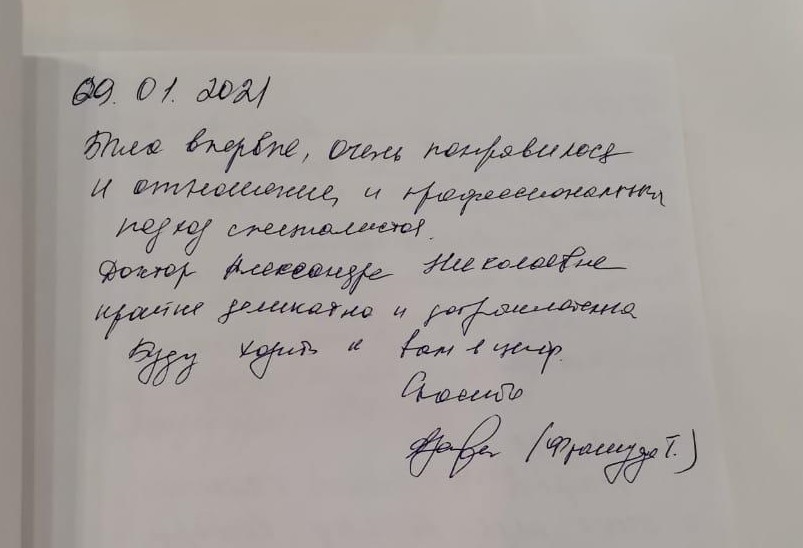 29.01.2021
Была впервые, очень понравилось
и отношение, и профессиональный
подход специалистов.
Доктор Александра Николаевна
крайне деликатна и доброжелательна
Буду ходить к вам в центр.
Спасибо